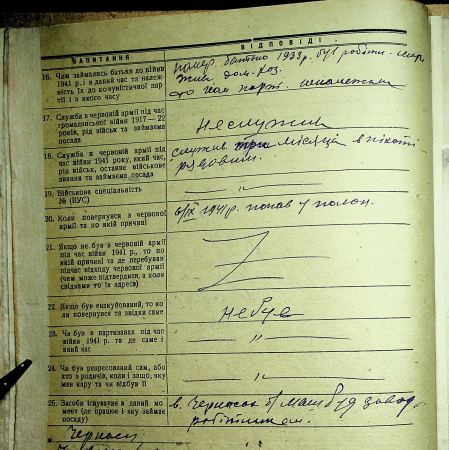 ЗАПИТАННЯ
ВІДПОВІДІ
16. Чим займались батьки до війни
1941 р. і в даний час та належ-
ність їх до комуністичної пар-
тії і з якого часу
помер батько 1933р. був робітн.
17. Служба в червоній армії під час
громадянської війни 1917—22
років, рід військ та займаєма
посада
не служив
18. Служба в червоній армії під
час війни 1941 року, який час,
рід військ, останнє військове
звання та займаєма посада
служив три місяця в піхоті
рядовим.
19. Військова спеціальність
№ (ВУС)
— „ —
20. Коли повернувся з червоної
армії та по якій причині
6/IX 1941р. попав у полон.
21. Якщо не був в червоній армії
під час війни 1941 р., то по
якій причині та де перебував
підчас відходу червоної армії
(чим може підтвердити, а коли
свідками то їх адреси)
22. Якщо був евакуйований, то ко-
ли повернувся та звідки саме
не був
23. Чи був в партизанах під час
війни 1941 р. та де саме і
який час
— „ —
24. Чи був репресований сам, або
хто з родичів, коли і защо, яку
мав кару та чи відбув її
— „ —
25. Засоби існування в даний мо-
мент (де працює і яку займає
посаду)
м. Черкаси